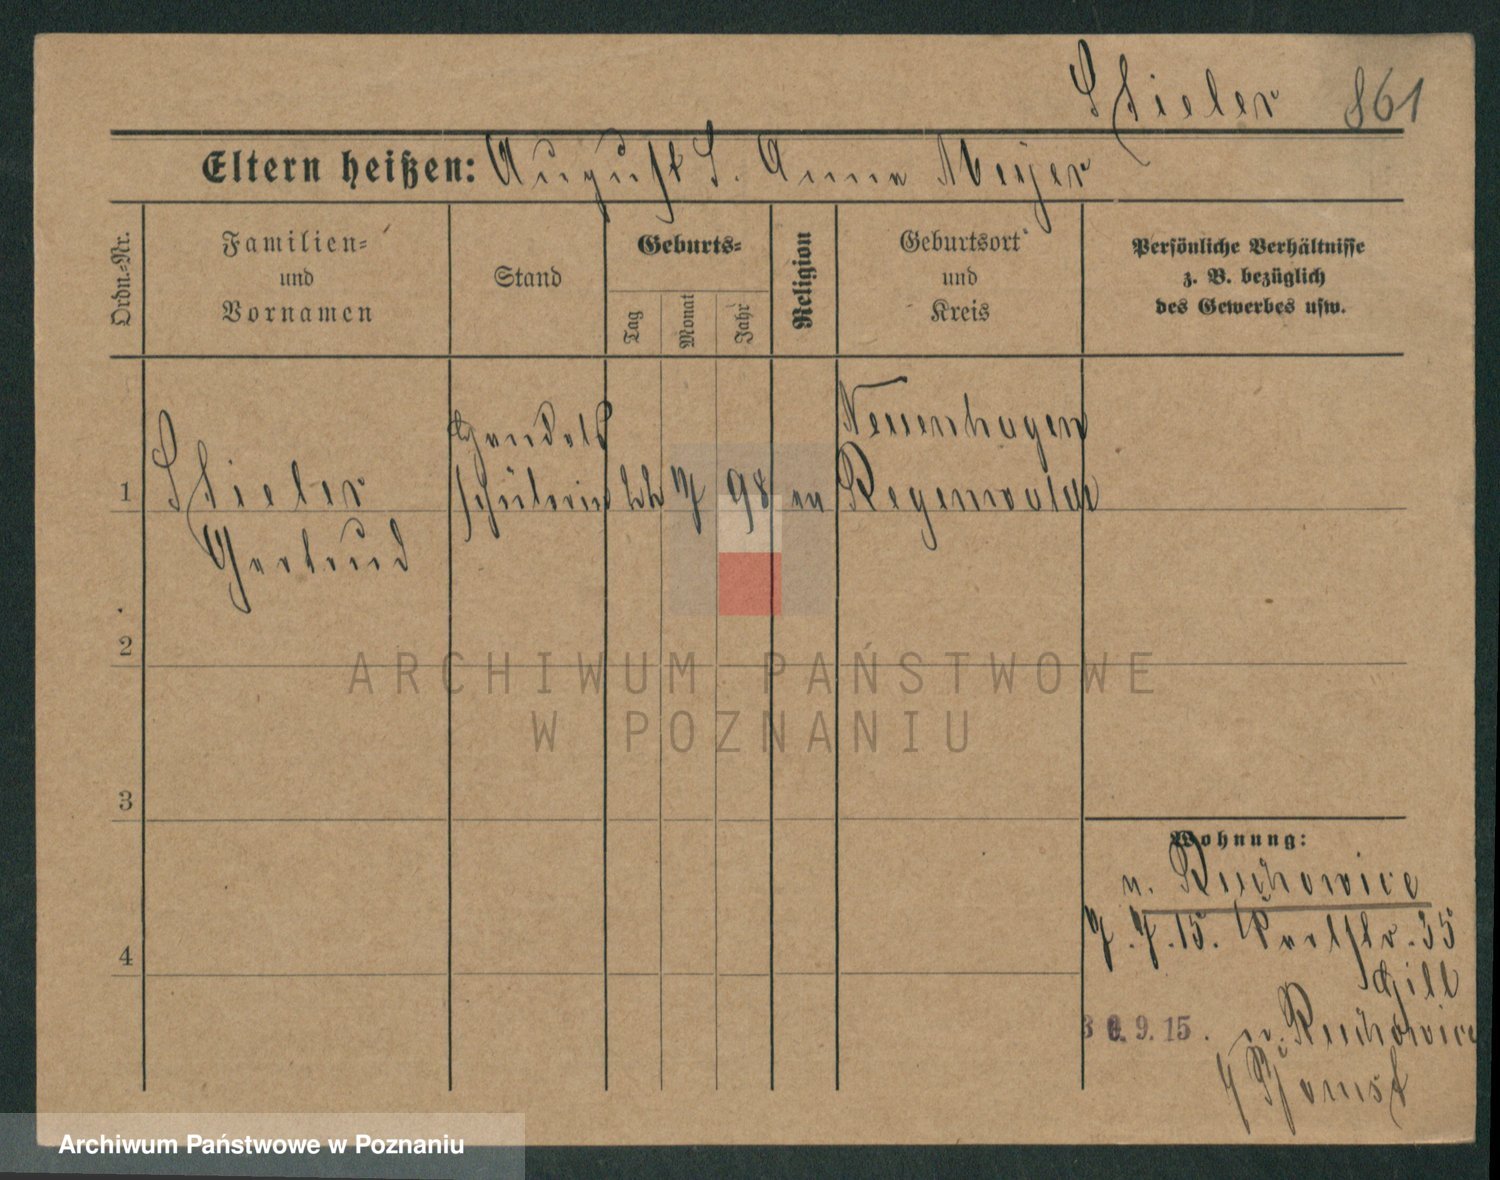 Stieler 861
Eltern heißen: August S. Anna Meyer
Ordn.-Nr.
Familien-
und
Vornamen
Stand
Geburts-
Tag
Monat
Jahr
Religion
Geburtsort
und
Kreis
Persönliche Verhältnisse
z. B. bezüglich
des Gewerbes usw.
1
Stieler
Gertrud
Handels
schülerin
22
7
98
ev
Neuenhagen
Regenwalde
2
ARCHIWUM PAŃSTWOWE
W POZNANIU
3
Wohnung:
v. Ruchowice
7.7.15. 35
4
Hill
30.9.15. n. Ruchowice
Bomst
Archiwum Państwowe w Poznaniu